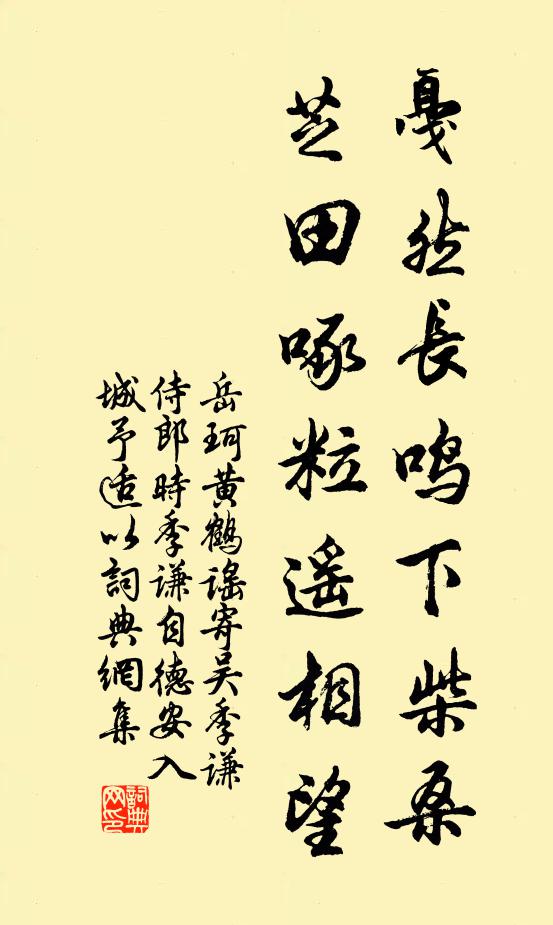 戛然长鸣下柴桑
芝田啄粒遥相望
岳珂黄鹤謡寄吴季谦
侍郎時季谦自德安入
城予适以詞典網集
詞典
网印